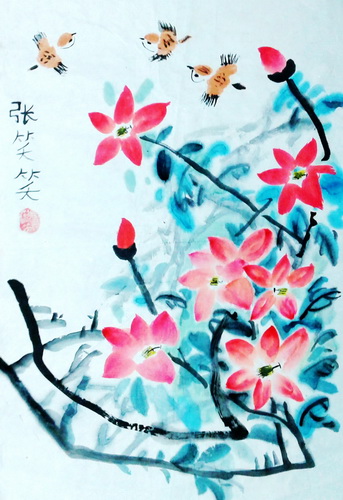 张笑笑